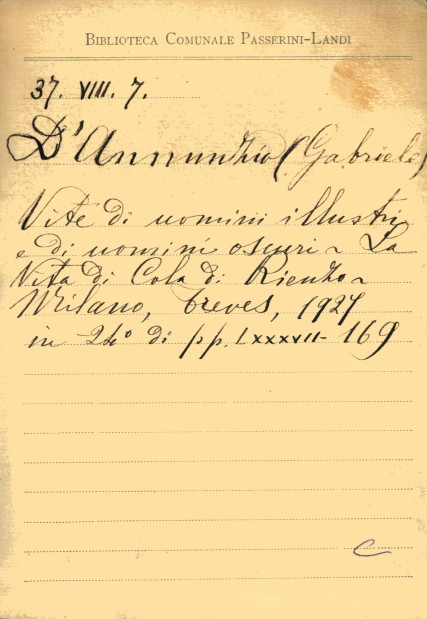 BIBLIOTECA COMUNALE PASSERINI-LANDI
37. VIII. 7.
D'Annunzio (Gabriele)
Vite di uomini illustri
e di uomini oscuri - La
Vita di Cola di Rienzo -
Milano, Treves, 1927
in 24° di pp. LXXXVII-169
C